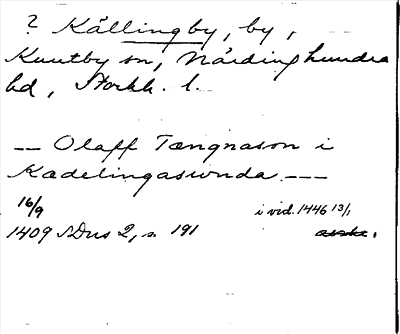 ? Källingby, by,
Knutby sn, Närdinghundra
hd, Stockh. l.
-- Olaff Tængnason i
Kædelingasunda ---
16/9
i vid. 1446 13/1
1409 SDns 2, s. 191